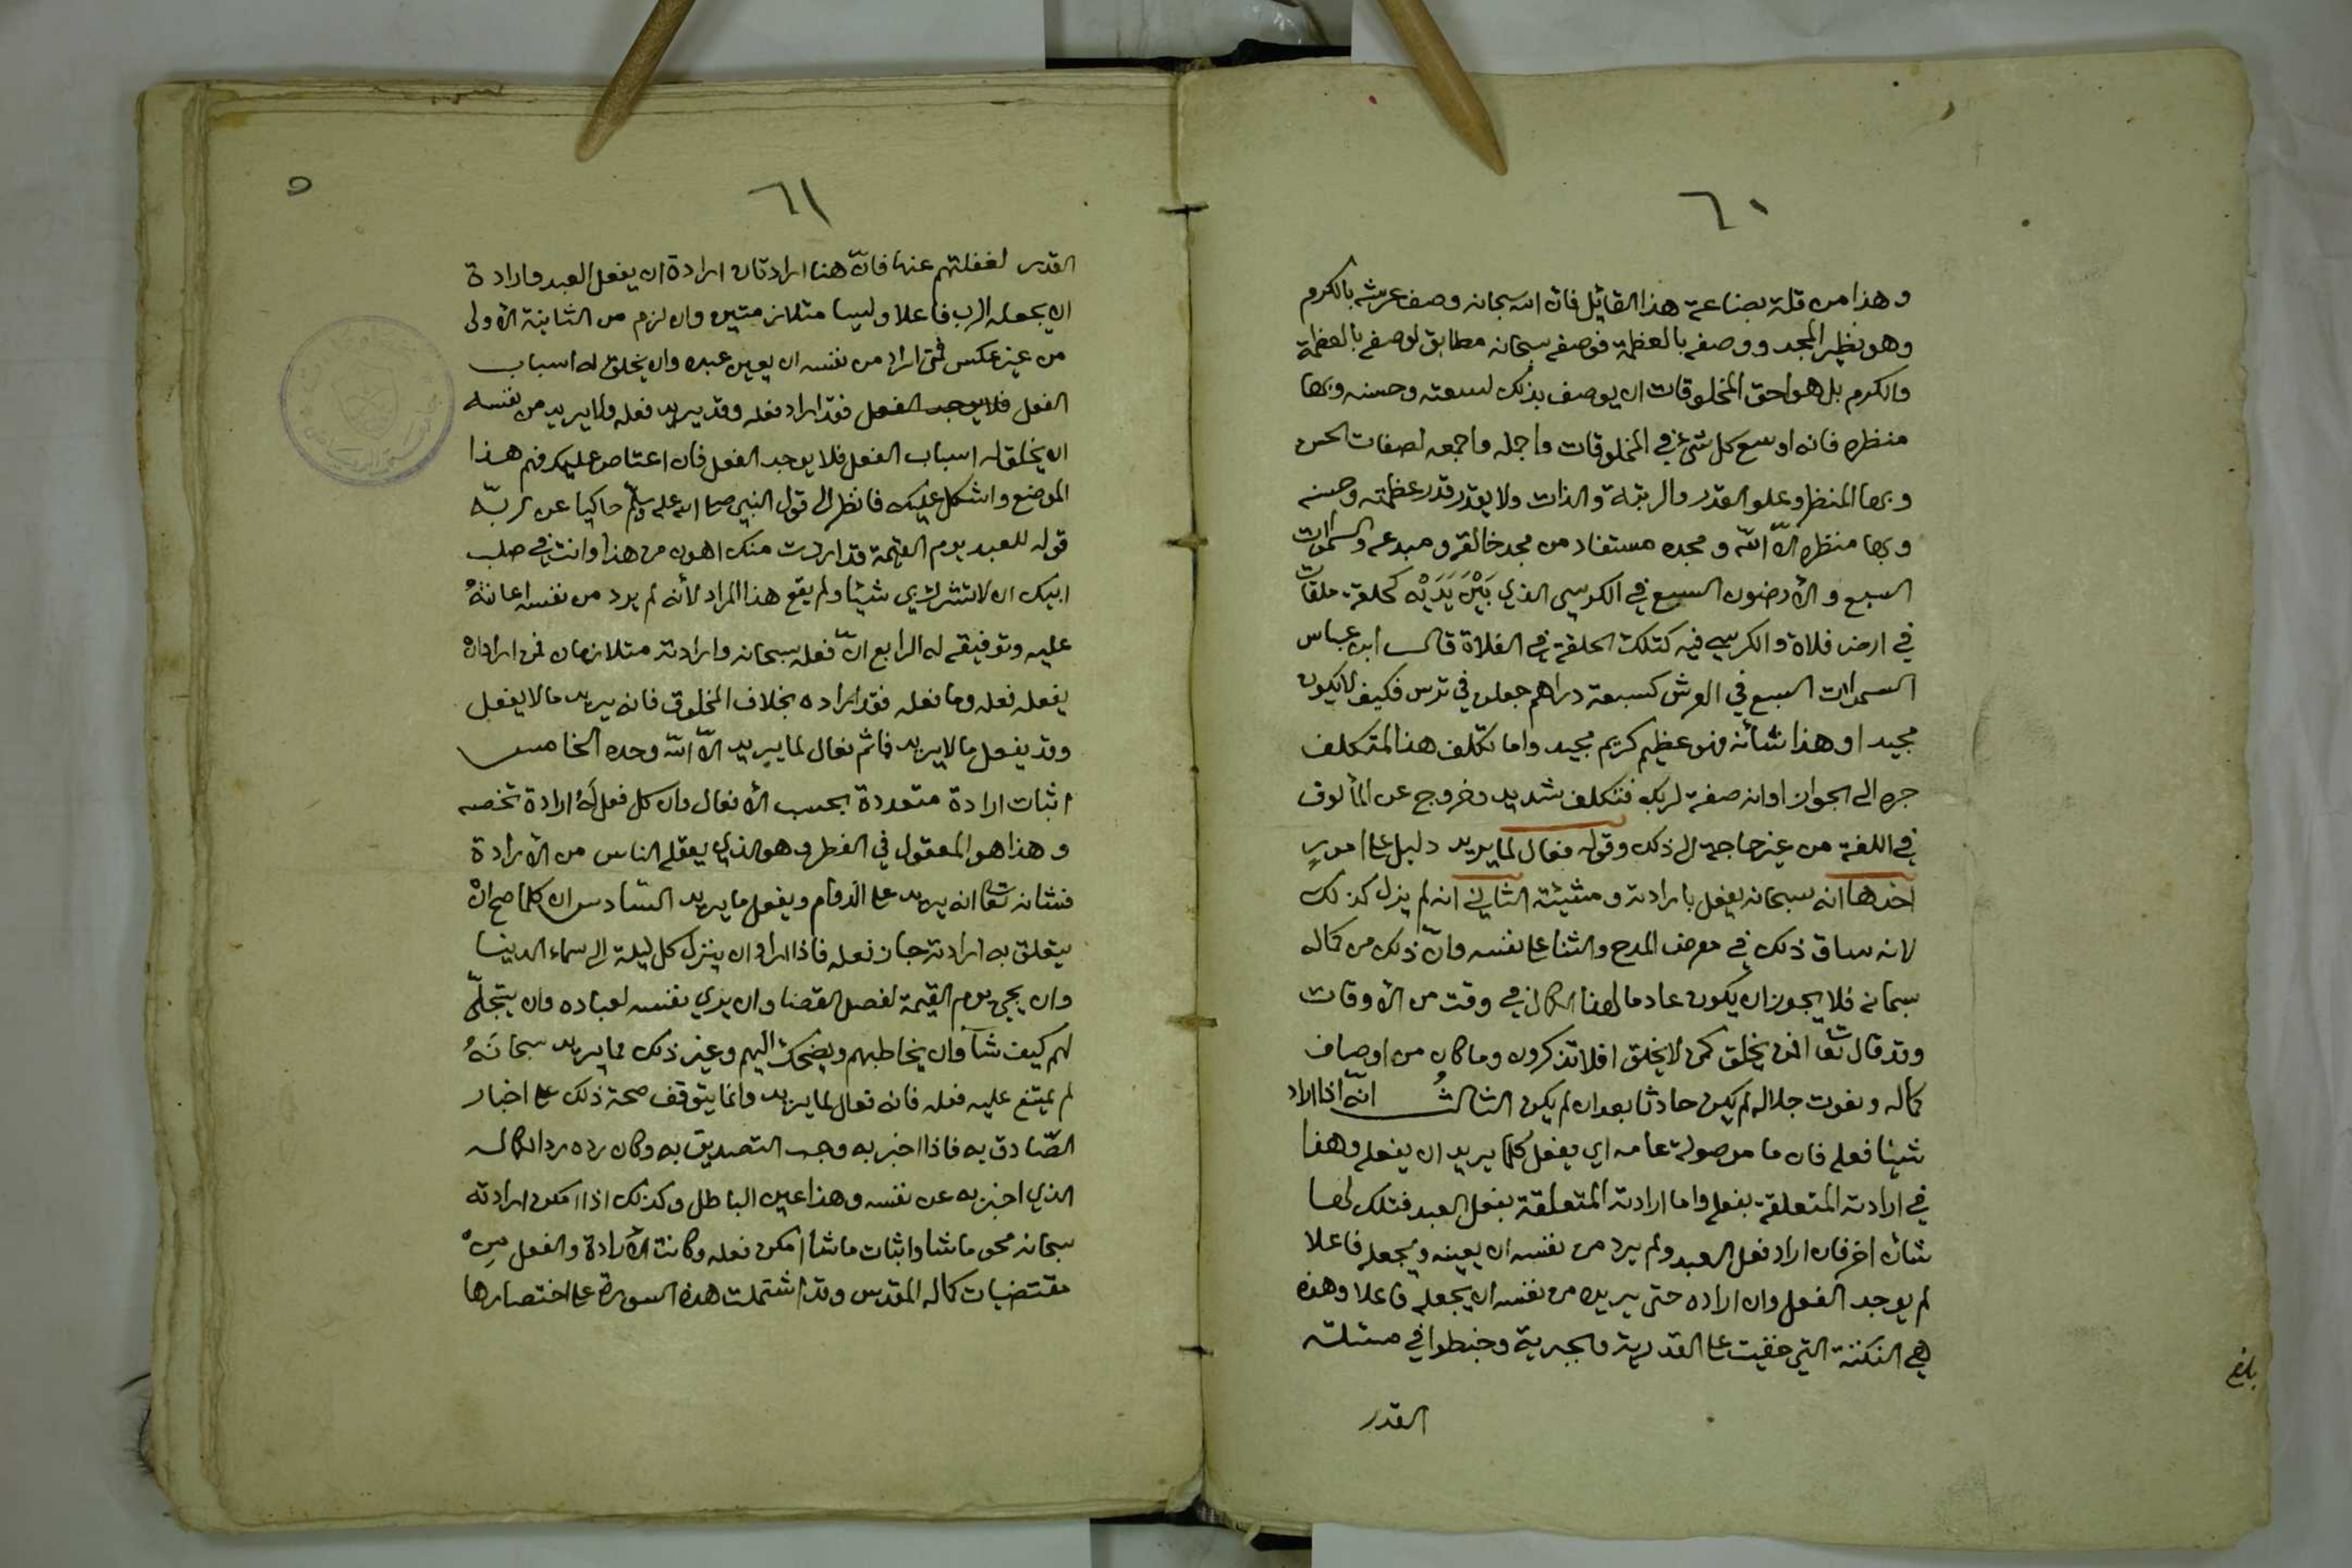 ٦٠
وهذا من قلة بضاعة هذا القائل فان الله سبحانه وصف عرشه بالكرم
وهو نظير المجد ووصفه بالعظمة فوصفه سبحانه مطابق لوصفه بالعظمة
والكرم بل هو احق المخلوقات ان يوصف بذلك لسعته وحسنه وبها
منظره فانه اوسع كل شئ في المخلوقات واجمله واجمعه لصفات الحسن
وبها المنظر وعلو القدر والرتبة والذات ولا يقدر قدر عظمته وحسنه
وبها منظره الا الله ومجده مستفاد من مجد خالقه ومبدعه والسموات
السبع والأرضون السبع في الكرسي الذي بَيْنَ يَدَيْه كحلقة ملقات
في ارض فلاة والكرسي فيه كتلك الحلقة في الفلاة قال ابن عباس
السموات السبع في العرش كسبعة دراهم جعلن في ترس فكيف لا يكون
مجيدا وهذا شأنه فهو عظيم كريم مجيد واما تكلف هذا المتكلف
جره الى الجوار او انه صفة لربك فتكلف شديد وخروج عن المألوف
في اللغة من غير حاجة الى ذلك وقوله فعال لما يريد دليل على امورٍ
احدها انه سبحانه يفعل بارادته ومشيئته الثاني انه لم يزل كذلك
لانه ساق ذلك في معرض المدح والثنا على نفسه وانّ ذلك من كماله
سبحانه فلا يجوز ان يكون عادما لهذا الكمال في وقت من الأوقات
وقد قال تعا افمن يخلق كمن لا يخلق افلا تذكرون وما كان من اوصاف
كماله ونعوت جلاله لم يكن حادثا بعد ان لم يكن الثالثُ انّه اذا اراد
شيئا فعله فان ما موصولة عامه اي يفعل كلما يريد ان يفعله وهذا
في ارادته المتعلقة بفعله واما ارادته المتعلقة بفعل العبد فتلك لها
شأن اخر فان اراد فعل العبد ولم يرد من نفسه ان يعينه ويجعله فاعلا
لم يوجد الفعل وان اراده حتى يريد من نفسه ان يجعله فاعلا وهذه
هي النكتة التي خفيت على القدرية والجبرية وخبطوا في مسئلة
القدر
بلغ
٦١
٥
القدر لغفلتهم عنها فانّ هنا ارادتان ارادة ان يفعل العبد وارادة
ان يجعله الرب فاعلا وليسا متلازمتين وان لزم من الثانية الأولى
من غير عكس فمتى اراد من نفسه ان يعين عبده وان يخلق له اسباب
الفعل فلا يوجد الفعل فقد اراد فعله وقد يريد فعله ولا يريد من نفسه
ان يخلق له اسباب الفعل فلا يوجد الفعل فان اعتاص عليك فهم هذا
الموضع واشكل عليك فانظر الى قول النبي صلى الله عليه وسلم حاكيا عن ربّه
قوله للعبد يوم القيمة قد اردت منك اهون من هذا وانت في صلب
ابيك ان لا تشرك بي شيئا ولم يقع هذا المراد لأنه لم يرد من نفسه اعانتهُ
عليه وتوفيقه له الرابع انّ فعله سبحانه وارادته متلازمان فمن اراد ان
يفعله فعله وما فعله فقد اراده بخلاف المخلوق فانه يريد ما لا يفعل
وقد يفعل ما لا يريد فما ثم فعال لما يريد الا الله وحده الخامس
اثبات ارادة متعددة بحسب الأفعال وان كل فعل لَهُ ارادة تخصه
وهذا هو المعقول في الفطر وهو الذي يعقله الناس من الأرادة
فشانه تعا انه يريد على الدوام ويفعل ما يريد السادس ان كلما صح ان
يتعلق به ارادته جاز فعله فاذا اراد ان ينزل كل ليلة الى سماء الدينا
وان يجي يوم القيمة لفصل القضا وان يري نفسه لعباده وان يتجلّى
لهم كيف شآ وان يخاطبهم ويضحك اليهم وغير ذلك مما يريد سبحانَهُ
لم يمتنع عليه فعله فانه فعال لما يريد وانما يتوقف صحة ذلك على اخبار
الصّادق به فاذا اخبر به وجب التصديق به وكان رده ردا لكماله
الذي اخبر به عن نفسه وهذا عين الباطل وكذلك اذا امكن ارادته
سبحانه محو ما شا واثبات ما شا امكن فعله وكانت الأرادة والفعل مِنْ
مقتضيات كماله المقدس وقد اشتملت هذه السورة على اختصارها